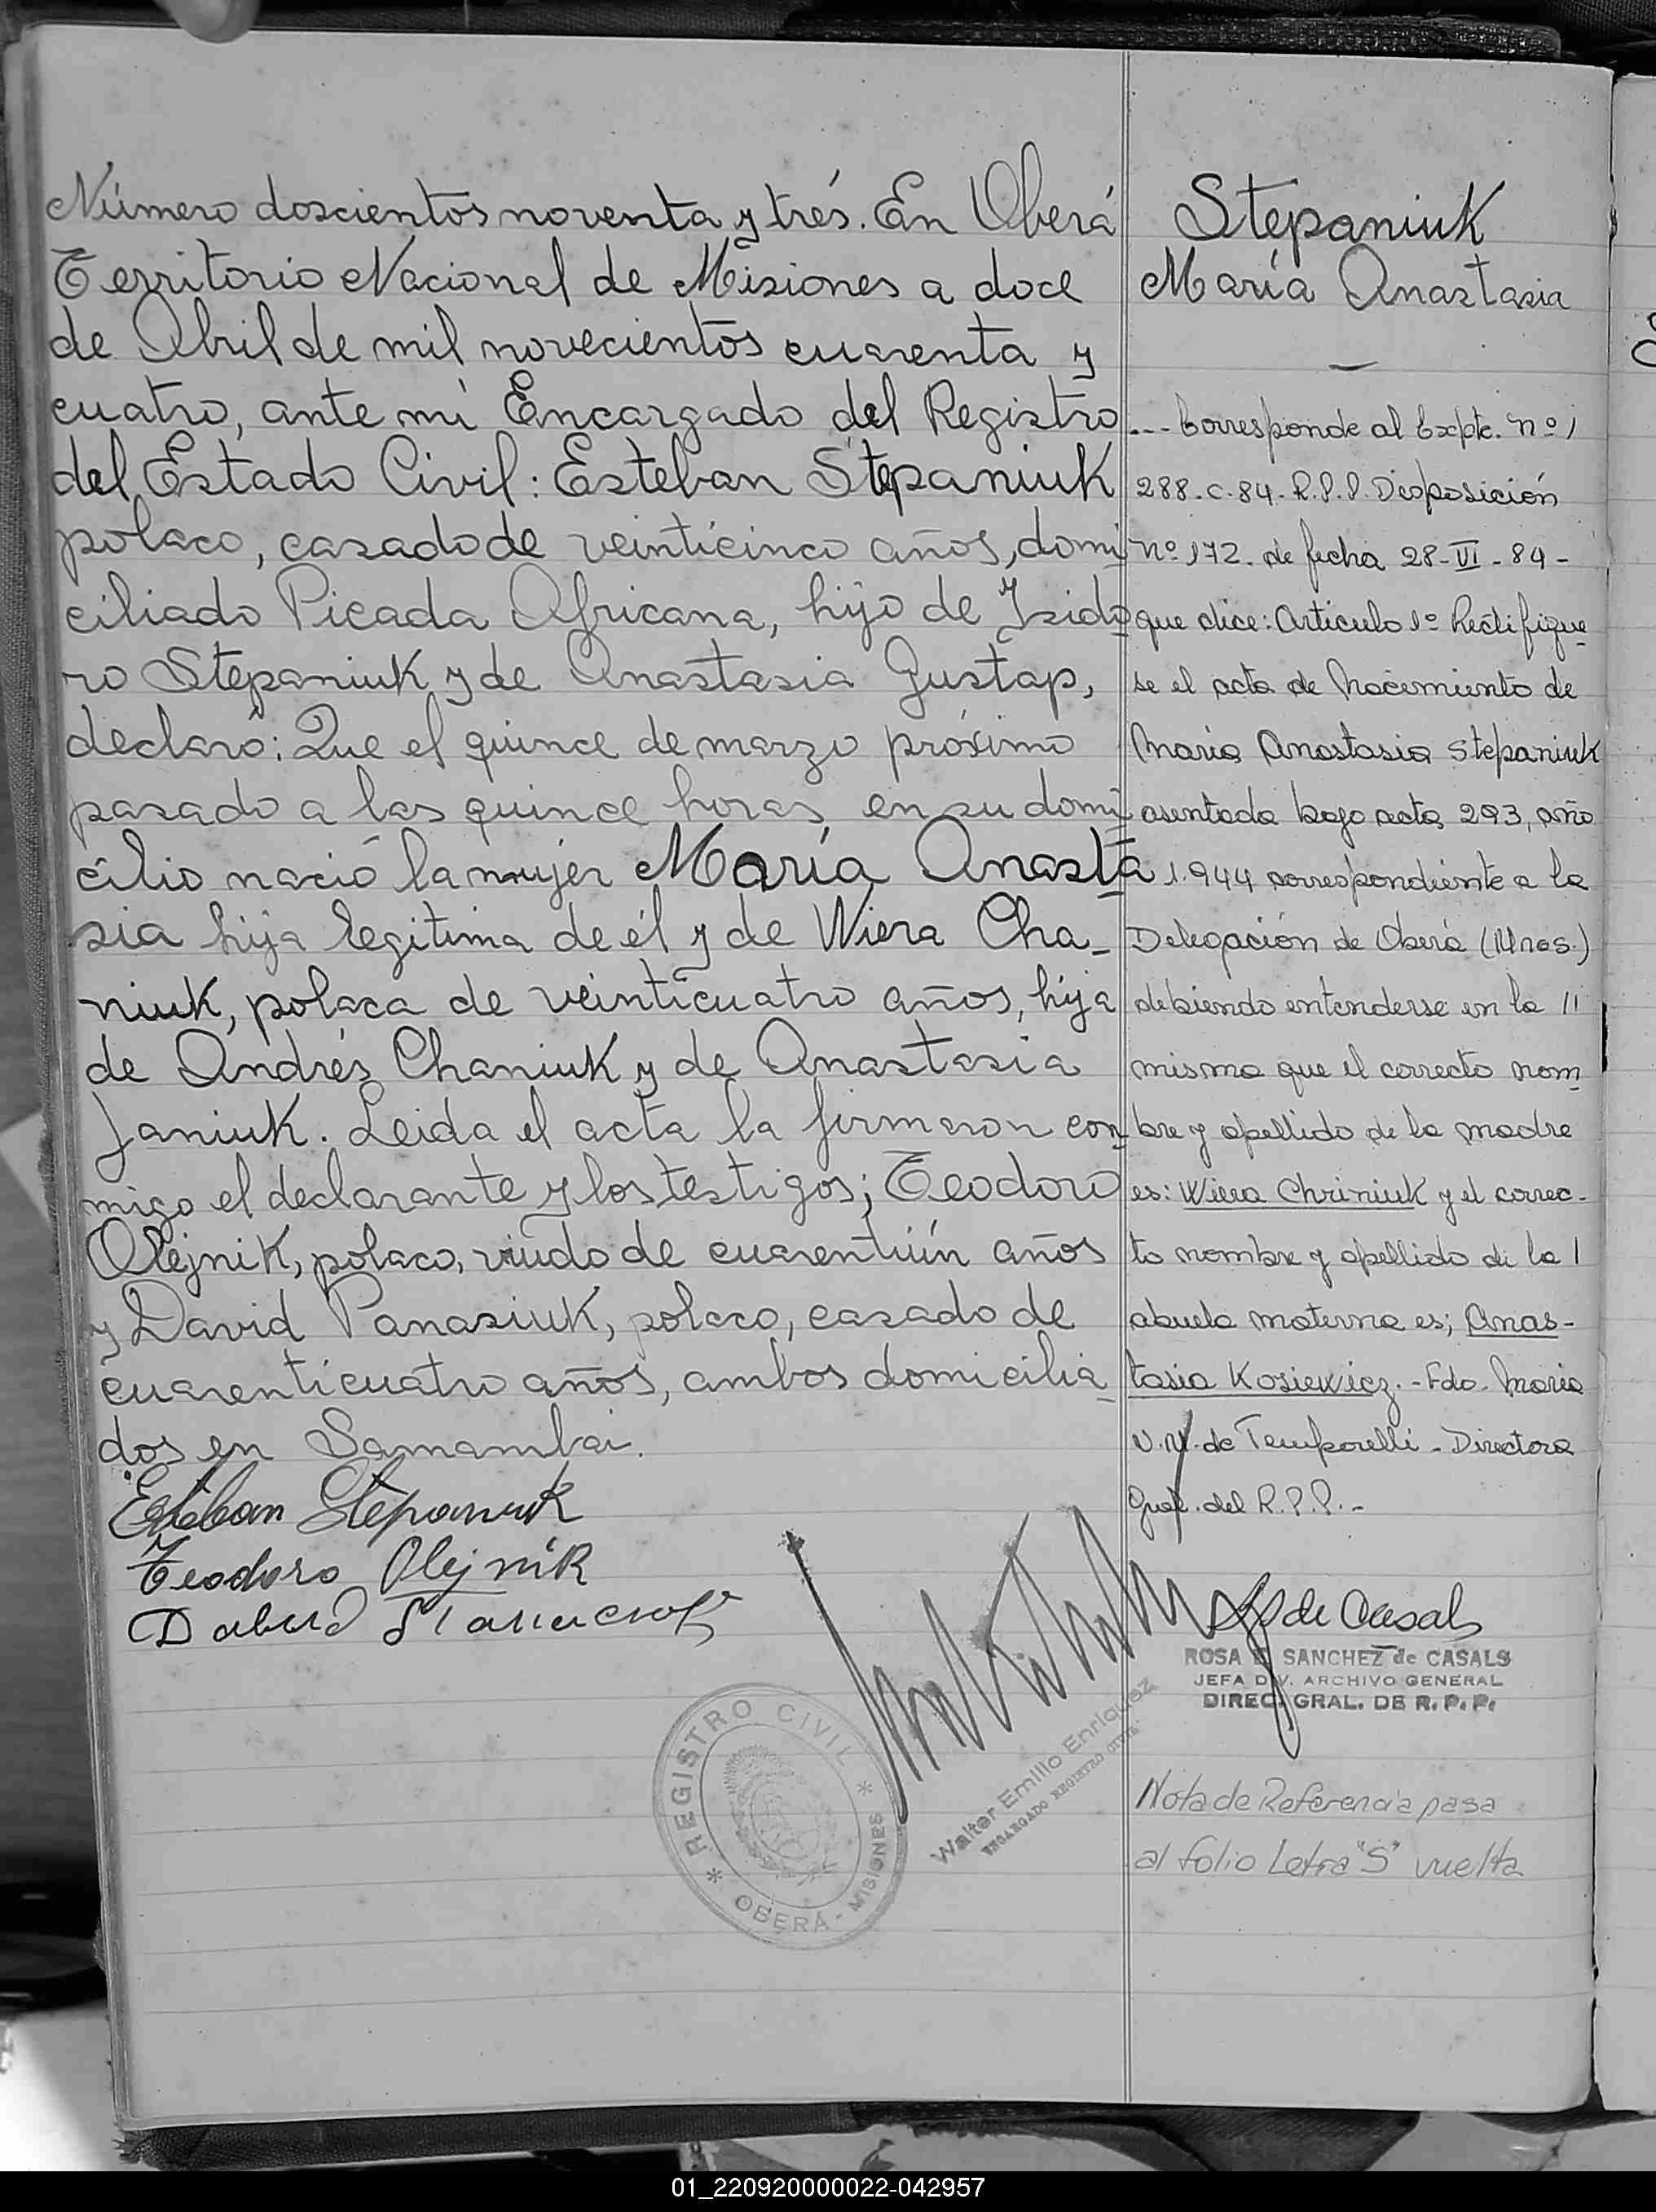 Número doscientos noventa y trés. En Oberá
Territorio Nacional de Misiones a doce
de Abril de mil novecientos cuarenta y
cuatro, ante mí Encargado del Registro
del Estado Civil: Esteban Stepaniuk
polaco, casado de veinticinco años, domi
ciliado Picada Africana, hijo de Isido
ro Stepaniuk y de Anastasia Gustap,
declaró: Que el quince de marzo próximo
pasado a las quince horas, en su domi
cilio nació la mujer María Anasta
sia hija legitima de él y de Wiera Cha-
niuk, polaca de veinticuatro años, hija
de Andrés Chaniuk y de Anastasia
Janiuk. Leida el acta la firmaron con
migo el declarante y los testigos; Teodoro
Olejnik, polaco, viudo de cuarentiún años
y David Panasiuk, polaco, casado de
cuarenticuatro años, ambos domicilia
dos en Samambai.
Esteban Stepaniuk
Teodoro Olejnik
REGISTRO CIVIL
OBERÁ - MISIONES
Walter Emilio Enriquez
ENCARGADO REGISTRO CIVIL
Stepaniuk
María Anastasia
--- Corresponde al Expte. nº 1
288-C-84-R.P.P. Disposición
nº 172 de fecha 28-VI-84-
que dice: Artículo 1º Rectifique
se el acta de Nacimiento de
María Anastasia Stepaniuk
asentada bajo acta 293, año
1.944 correspondiente a la
Delegación de Oberá (Mnes.)
debiendo entenderse en la //
misma que el correcto nom
bre y apellido de la madre
es: Wiera Chriniuk y el correc-
to nombre y apellido de la /
abuela materna es; Anas-
tasia Kosiewicz.-Fdo. María
V.M. de Temporelli - Directora
Gral. del R.P.P.-
de Casals
ROSA E. SANCHEZ de CASALS
JEFA DIV. ARCHIVO GENERAL
DIREC. GRAL. DE R. P. P.
Nota de Referencia pasa
al folio Letra "S" vuelta
01_220920000022-042957